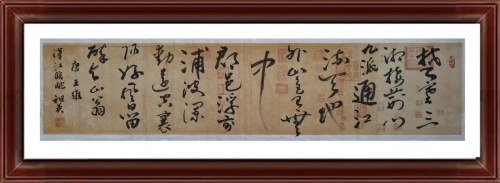 楚塞三
湘接荆门
九派通江
流天地
外山色有無
中
郡邑浮前
浦波澜
動遠空襄
阳好风日留
醉与山翁
唐王維
漢江臨眺